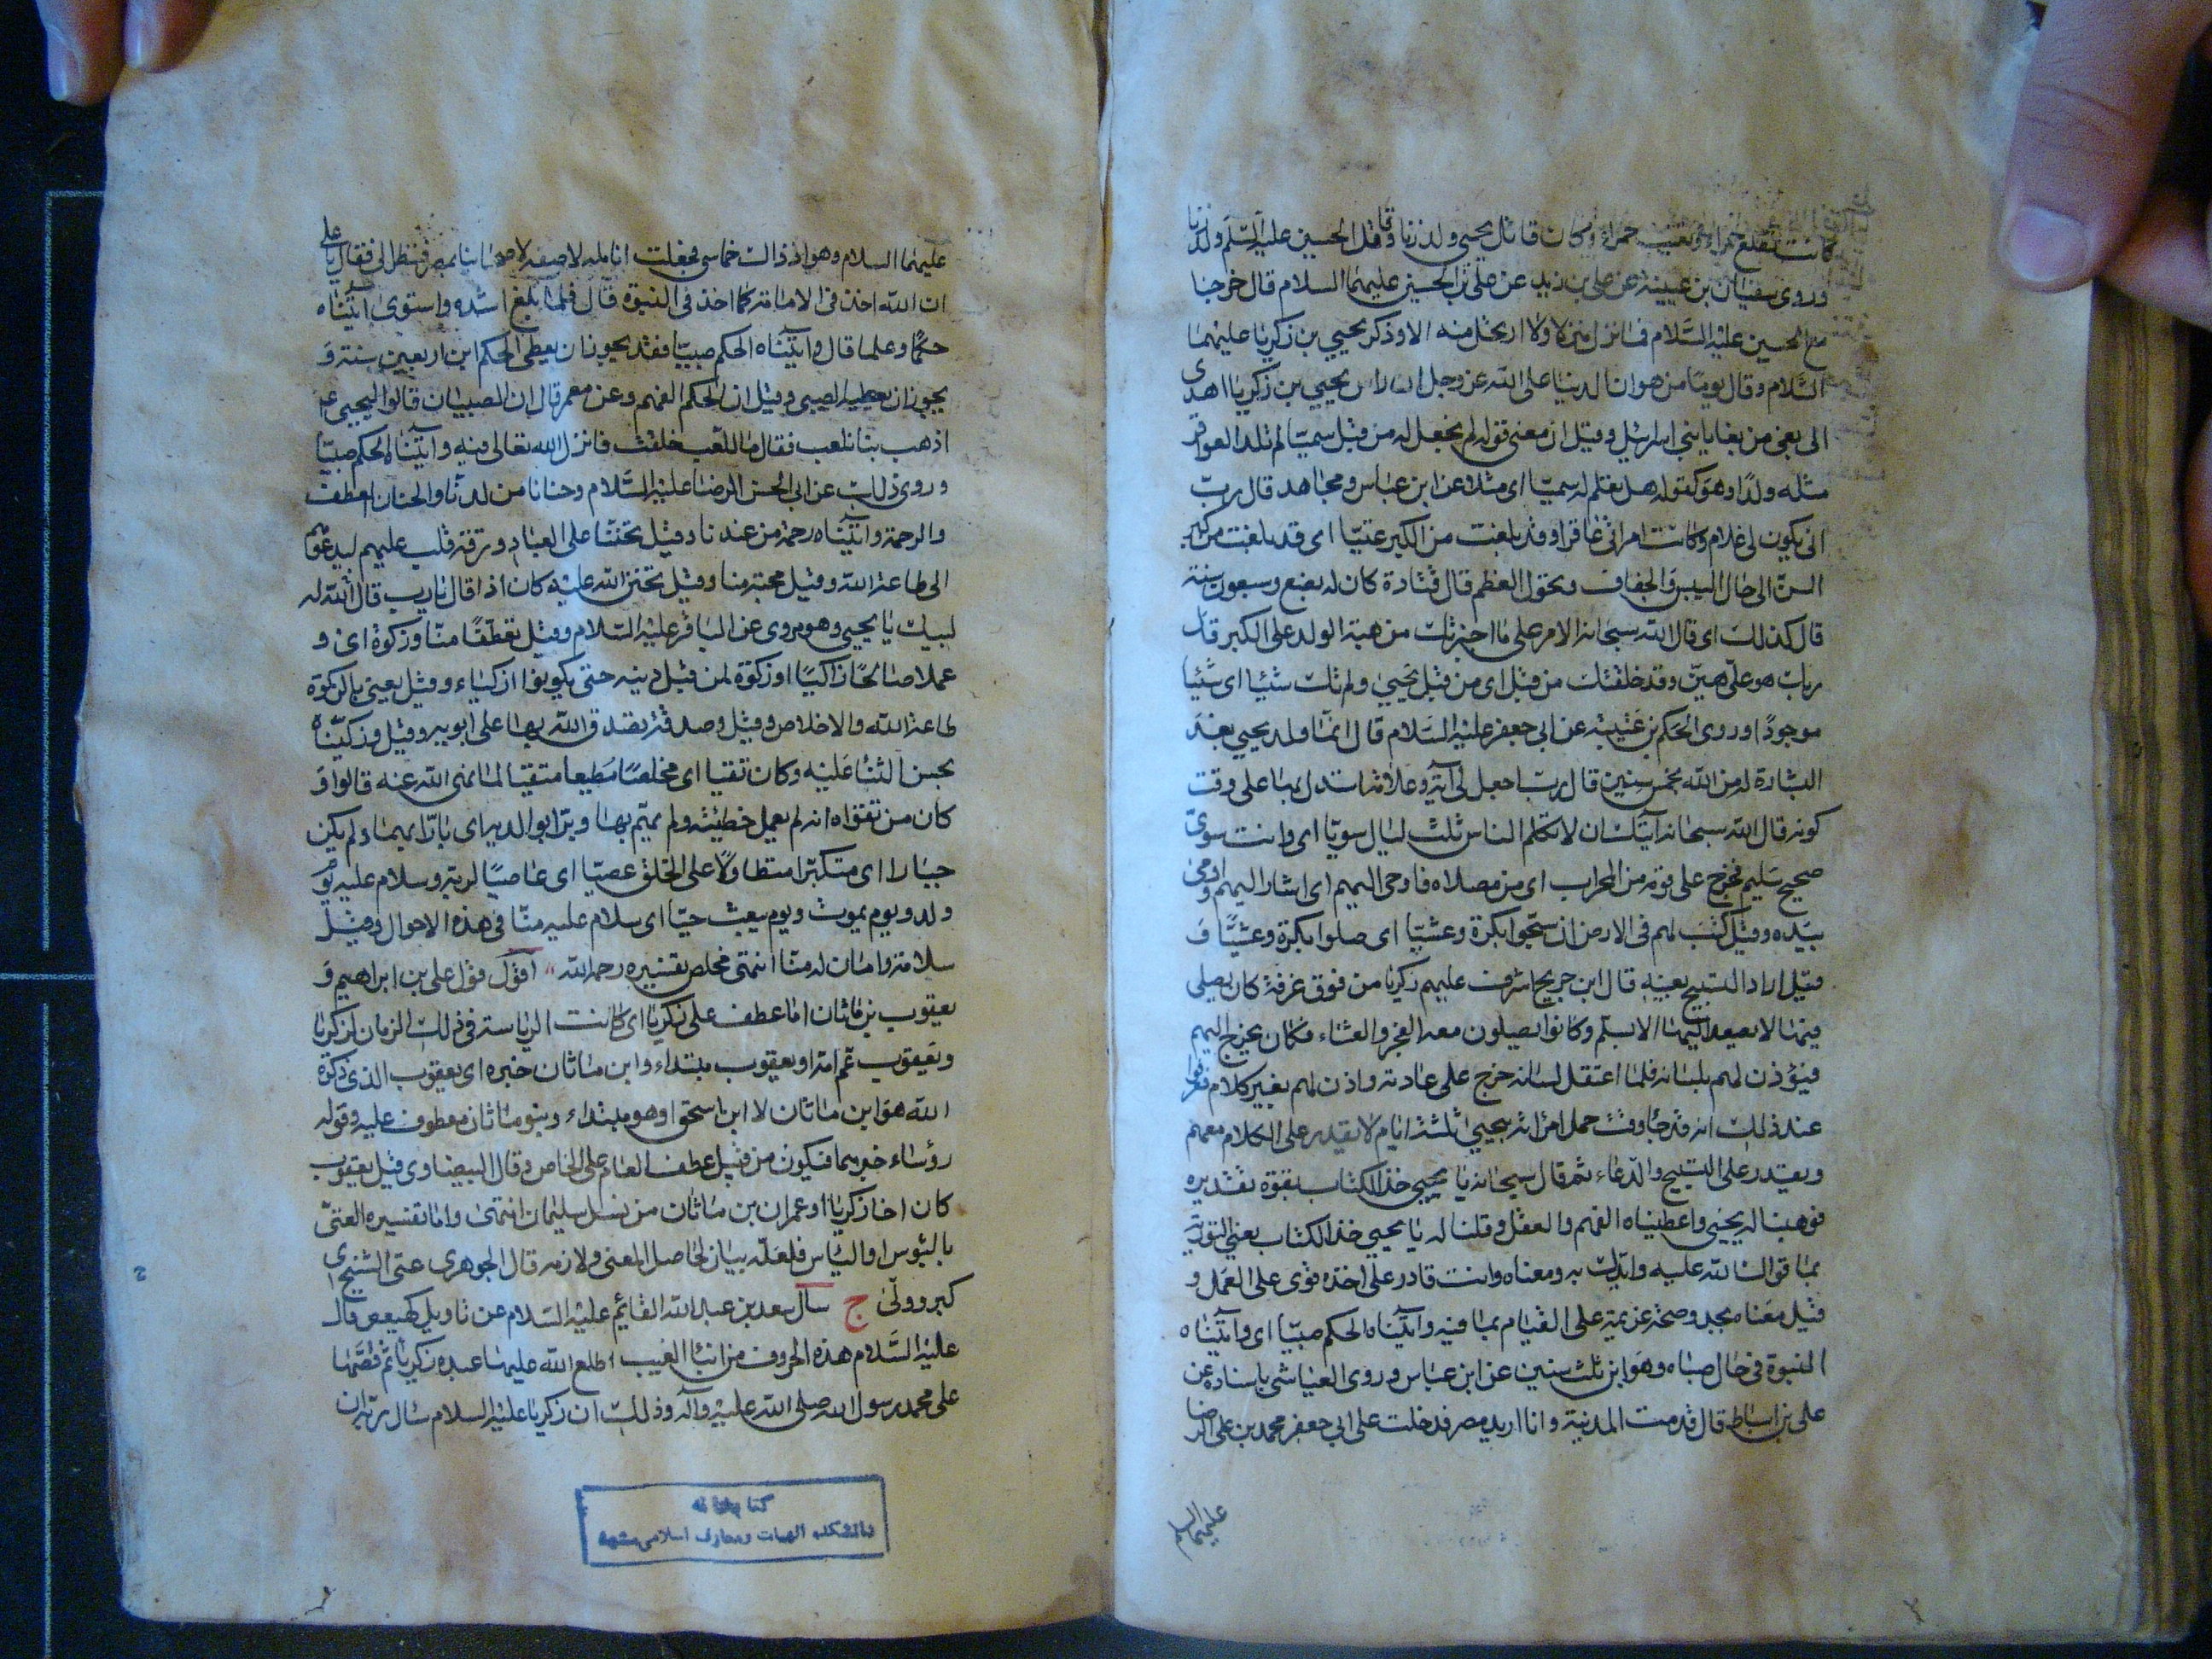 كانت تطلع حمراء وتغيب حمراء وكان قاتل يحيى ولد زنا وقاتل الحسين عليه السلم ولد زنا
وروى سفيان بن عيينة عن علي بن زيد عن علي بن الحسين عليهما السلام قال خرجنا
مع الحسين عليه السلام فما نزل منزلا ولا ارتحل منه الا وذكر يحيى بن زكريا عليهما
السلام وقال يوما من هوان الدنيا على الله عز وجل ان راس يحيى بن زكريا اهدى
الى بغى من بغايا بني اسرائيل وقيل ان معنى قوله لم نجعل له من قبل سميا لم تلد العواقر
مثله ولدا وهو كقوله هل تعلم له سميا اى مثلا عن ابن عباس ومجاهد قال رب
انى يكون لى غلام وكانت امراتى عاقرا وقد بلغت من الكبر عتيا اى قد بلغت من كبر
السن الى حال اليبس والجفاف ونحول العظم قال قتادة كان له بضع وسبعون سنة
قال كذلك اى قال الله سبحانه الامر على ما اخبرتك من هبة الولد على الكبر قال
ربك هو على هين وقد خلقتك من قبل اى من قبل يحيى ولم تك شيئا اى شيئا
موجودا وروى الحكم بن عتيبة عن ابى جعفر عليه السلام قال انما ولد يحيى بعد
البشارة له من الله بخمس سنين قال رب اجعل لى آية وعلامة استدل بها على وقت
كونه قال الله سبحانه آيتك ان لا تكلم الناس ثلث ليال سويا اى وانت سوى
صحيح سليم فخرج على قومه من المحراب اى من مصلاه فاوحى اليهم اى اشار اليهم واومى
بيده وقيل كتب لهم فى الارض ان سبحوا بكرة وعشيا اى صلوا بكرة وعشيا و
قيل اراد التسبيح بعينه قال ابن جريح اشرف عليهم زكريا من فوق غرفة كان يصلى
فيها لا يصعد اليها الا بسلم وكانوا يصلون معه الفجر والعشاء فكان يخرج اليهم
فيؤذن لهم بلسانه فلما اعتقل لسانه خرج على عادته واذن لهم بغير كلام فعرفوا
عند ذلك انه قد جاء وقت حمل امراته بيحيى فمكث ثلثة ايام لا يقدر على الكلام معهم
ويقدر على التسبيح والدعاء ثم قال سبحانه يا يحيى خذ الكتاب بقوة تقديره
فوهبنا له يحيى واعطيناه الفهم والعقل وقلنا له يا يحيى خذ الكتاب يعني التورية
بما قواك الله عليه وايدك به ومعناه وانت قادر على اخذه قوى على العمل و
قيل معناه بجد وصحة عزيمة على القيام بما فيه وآتيناه الحكم صبيا اى وآتيناه
النبوة فى حال صباه وهو ابن ثلث سنين عن ابن عباس وروى العياشى باسناده عن
على بن اسباط قال قدمت المدينة وانا اريد مصر فدخلت على ابي جعفر محمد بن على الرضا
عليهما السلم
عليهما السلام وهو اذ ذاك خماسى فجعلت اتامله لاصفه لاصحابنا بمصر فنظر الى فقال يا على
ان الله اخذ فى الامامة كما اخذ فى النبوة قال فلما بلغ اشده واستوى آتيناه
حكما وعلما قال وآتيناه الحكم صبيا فقد يجوز ان يعطى الحكم ابن اربعين سنة و
يجوز ان يعطيه الصبى وقيل ان الحكم الفهم وعن معمر قال ان الصبيان قالوا ليحيى
اذهب بنا نلعب فقال ما للعب خلقت فانزل الله تعالى فيه وآتيناه الحكم صبيا
وروى ذلك عن ابى الحسن الرضا عليه السلام وحنانا من لدنا والحنان العطف
والرحمة وآتيناه رحمة من عندنا وقيل تحننا على العباد ورقة قلب عليهم ليدعوهم
الى طاعة الله وقيل محبة منا وقيل تحنن الله عليه كان اذا قال يا رب قال الله له
لبيك يا يحيى وهو مروى عن الباقر عليه السلام وقيل تعطفا منا وزكوة اى و
عملا صالحا زاكيا او زكوة لمن قبل دينه حتى يكونوا ازكياء وقيل يعنى بالزكوة
طاعة الله والاخلاص وقيل وصدقة تصدق الله بها على ابويه وقيل وزكيناه
بحسن الثناء عليه وكان تقيا اى مخلصا مطيعا متقيا لما نهى الله عنه قالوا و
كان من تقواه انه لم يعمل خطيئة ولم يهم بها وبرا بوالديه اى بارا بهما ولم يكن
جبارا اى متكبرا متطاولا على الخلق عصيا اى عاصيا لربه وسلام عليه يوم
ولد ويوم يموت ويوم يبعث حيا اى سلام عليه منا فى هذه الاحوال وقيل
سلامة وامان له منا انتهى مخلص تفسيره رحمه الله اقول قول على بن ابراهيم و
يعقوب بن ماثان اما عطف على زكريا اى كانت الرياسة فى ذلك الزمان لزكريا
ويعقوب عم امه او يعقوب مبتداء وابن ماثان خبره اى يعقوب الذى ذكره
الله هو ابن ماثان لا ابن اسحق او هو مبتداء وبنو ماثان معطوف عليه وقوله
رؤساء خبرهما فيكون من قبيل عطف العام على الخاص وقال البيضاوى قيل يعقوب
كان اخا زكريا او عمران بن ماثان من نسل سليمان انتهى واما تفسيره العتى
بالبؤس او الياس فلعله بيان لحاصل المعنى ولازمه قال الجوهرى عتى الشيخ اى
كبر وولى ج سال سعد بن عبد الله القائم عليه السلام عن تاويل كهيعص قال
عليه السلام هذه الحروف من انباء الغيب اطلع الله عليها عبده زكريا ثم قصها
على محمد رسول الله صلى الله عليه وآله وذلك ان زكريا عليه السلام سال ربه ان
كتابخانه
دانشكده الهيات ومعارف اسلامى مشهد